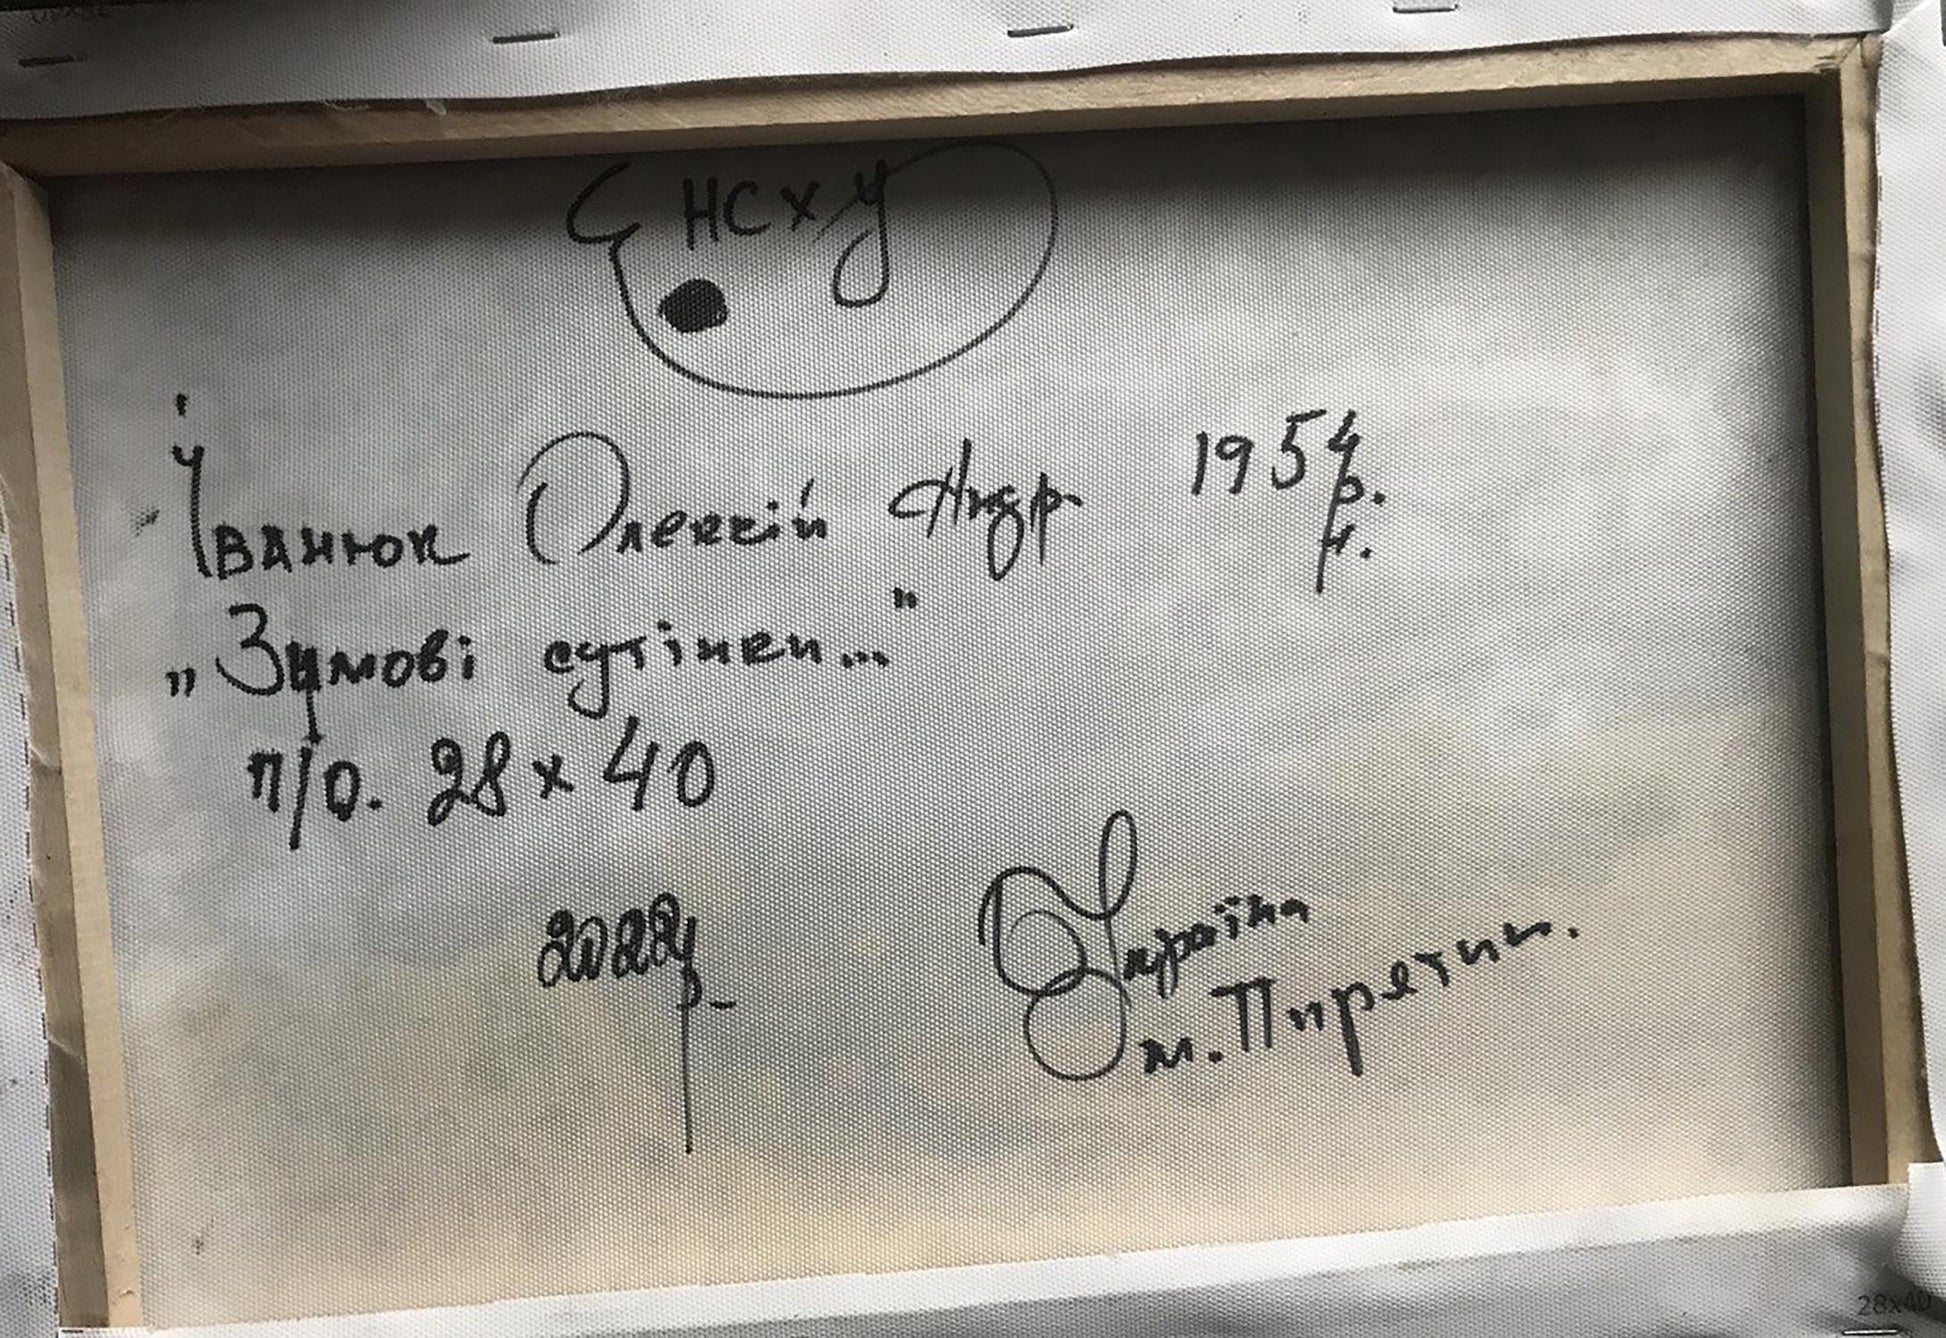 НСХУ
Іванюк Олексій Андр. 1954 р.н.
„Зимові сутінки..."
п/о. 28 х 40
2022р.
Україна
м. Пирятин.
28x40